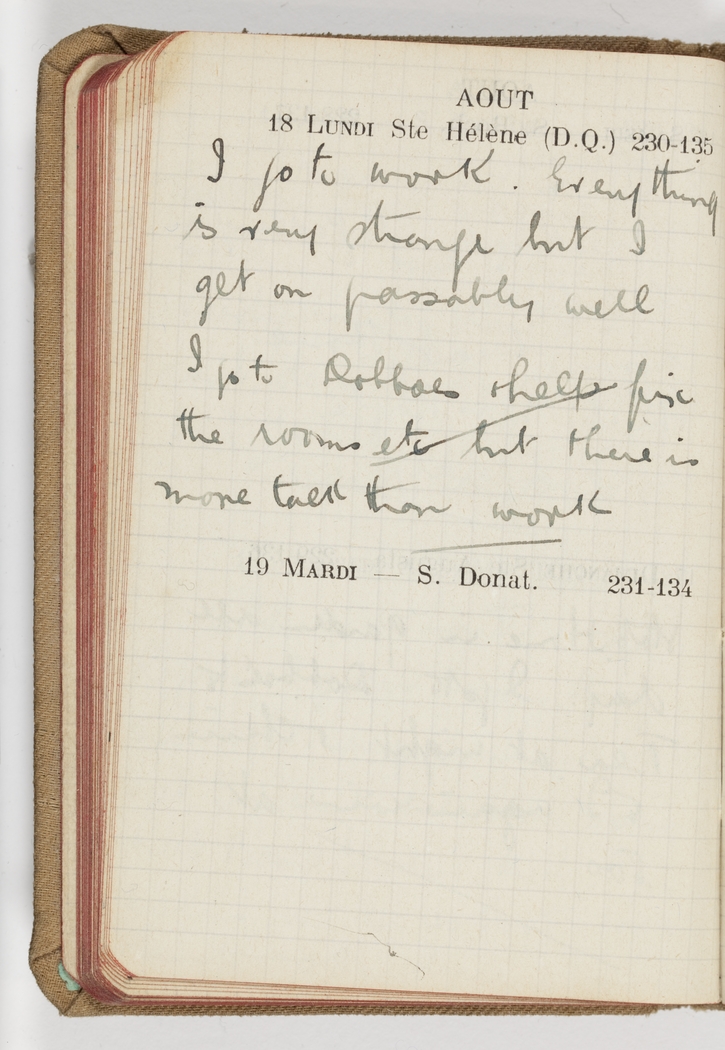 AOUT
18 LUNDI Ste Hélène (D.Q.) 230-135
I go to work. Everything
is very strange but I
get on passably well
I go to help fix
the rooms etc but there is
more talk than work
19 MARDI — S. Donat. 231-134